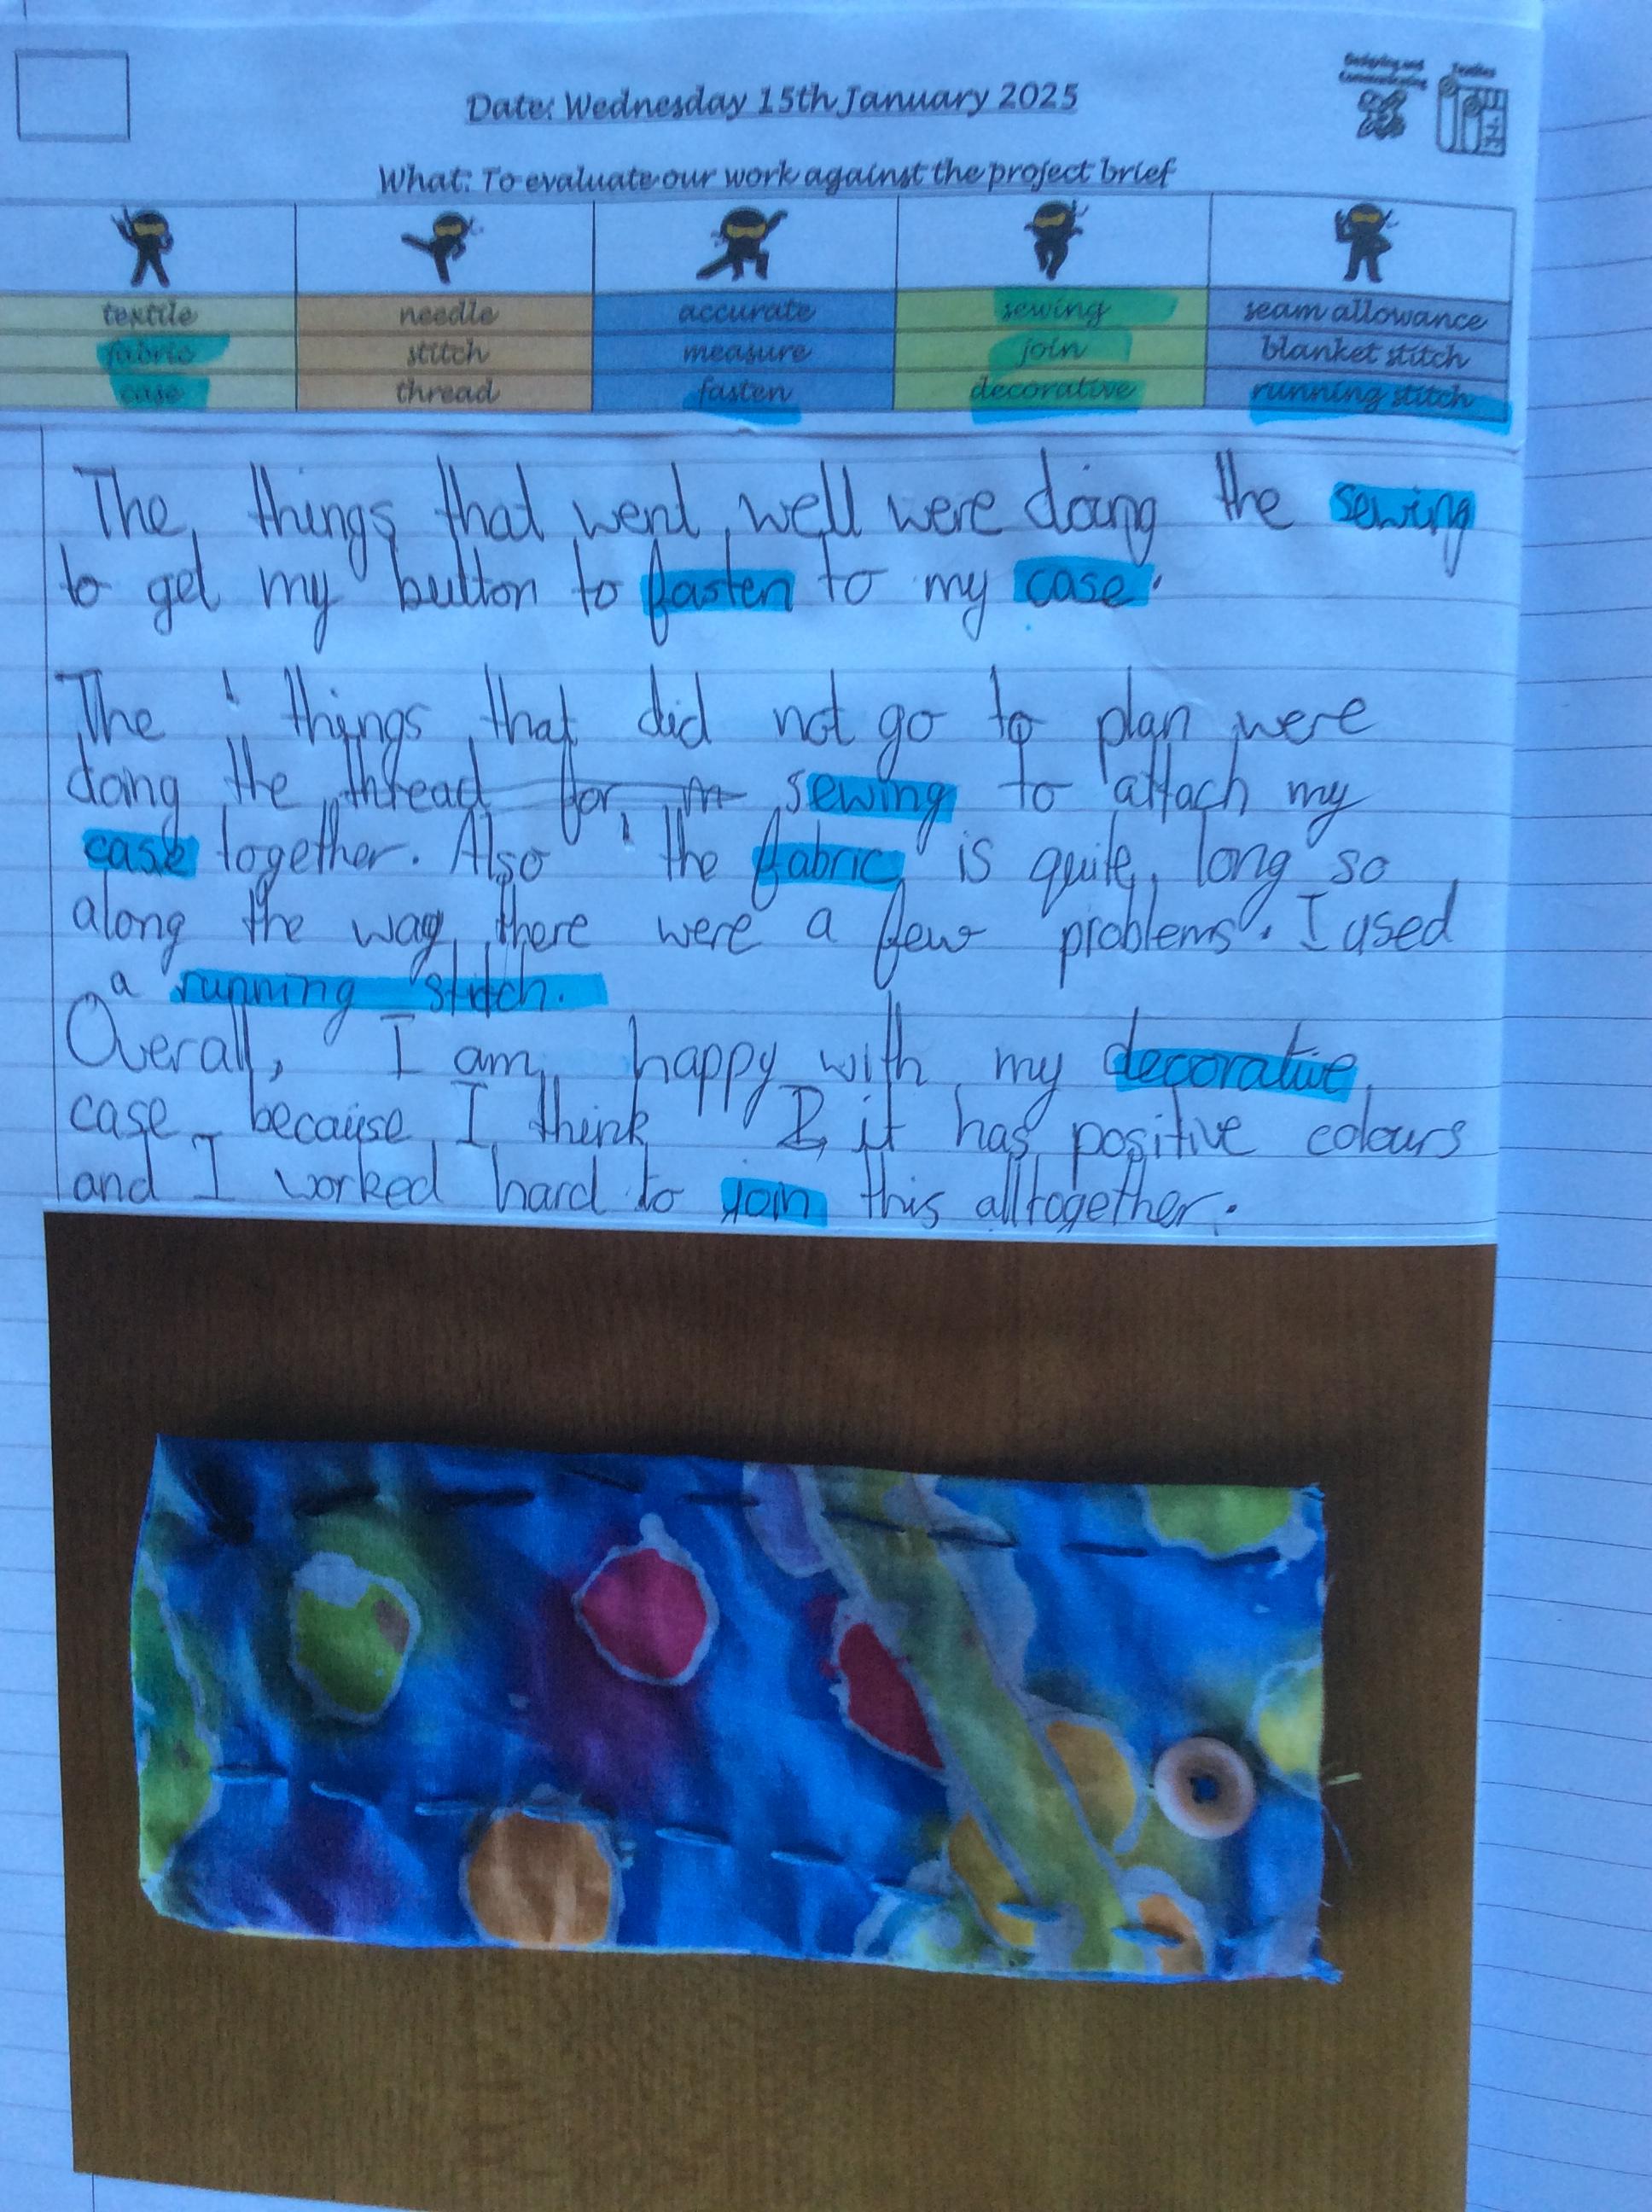 Designing and Communicating
Textiles
Date: Wednesday 15th January 2025
What: To evaluate our work against the project brief
textile needle accurate sewing seam allowance
fabric stitch measure join blanket stitch
case thread fasten decorative running stitch
The things that went well were doing the sewing
to get my button to fasten to my case.
The things that did not go to plan were
doing the thread for m sewing to attach my
case together. Also the fabric is quite long so
along the way there were a few problems. I used
a running stitch.
Overall, I am happy with my decorative
case because I think I it has positive colours
and I worked hard to join this alltogether.